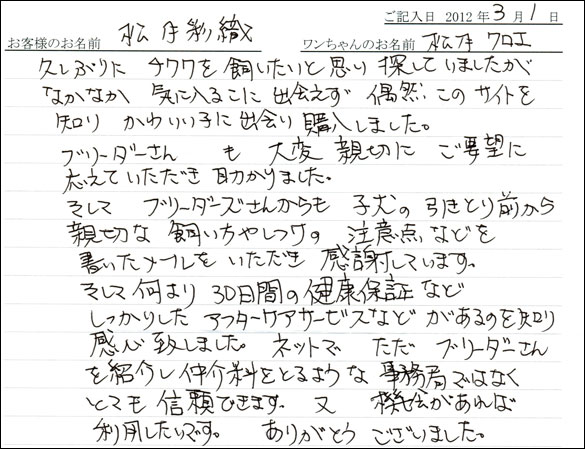 ご記入日 2012 年 3 月 1 日
お客様のお名前 松井 彩織 ワンちゃんのお名前 松井 クロエ
久しぶりに チワワを 飼いたいと思い 探していましたが
なかなか 気に入るこに 出会えず 偶然 このサイトを
知り かわいい子に出会い 購入しました。
ブリーダーさん も 大変 親切に ご要望に
応えていただき 助かりました。
そして ブリーダーズさんからも 子犬の 引きとり前から
親切な 飼いちやしつけの 注意点などを
書いたメールを いただき 感謝しています。
そして 何より 30日間の健康保証など
しっかりした アフターケアサービスなど があるのを知り
感心致しました。 ネットで ただ ブリーダーさん
を紹介し仲介料をとるような 事務局ではなく
とても 信頼できます。 又 機会があれば
利用したいです。 ありがとう ございました。